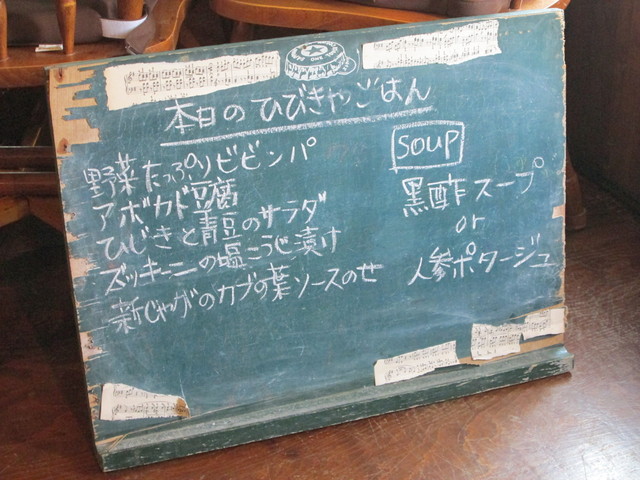 本日のひびきやごはん
野菜たっぷりビビンパ
アボカド豆腐
ひじきと青豆のサラダ
ズッキーニの塩こうじ漬け
新じゃがのカブの葉ソースのせ
SOUP
黒酢スープ
or
人参ポタージュ